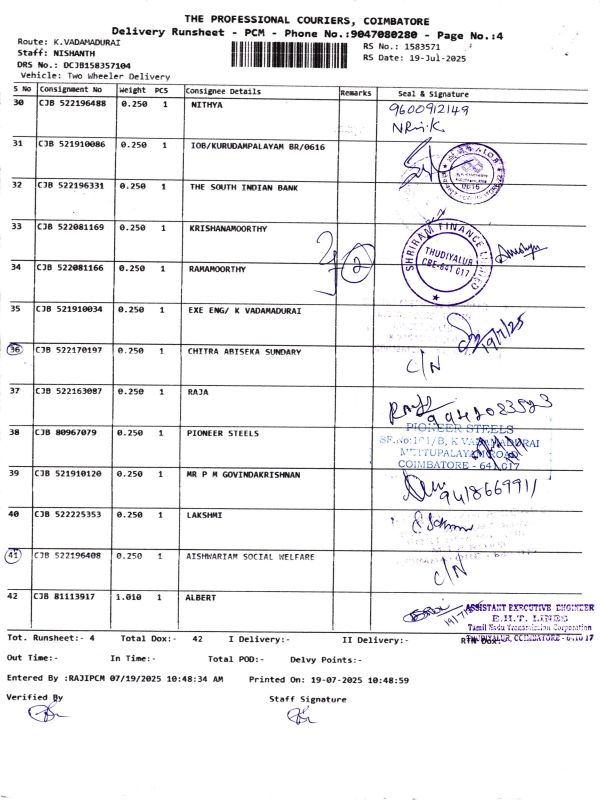 THE PROFESSIONAL COURIERS, COIMBATORE
Delivery Runsheet - PCM - Phone No.:9047080280 - Page No.:4
Route: K.VADAMADURAI
Staff: NISHANTH
DRS No.: DCJB158357104
Vehicle: Two Wheeler Delivery
RS No.: 1583571
RS Date: 19-Jul-2025
S No Consignment No Weight PCS Consignee Details Remarks Seal & Signature
30 CJB 522196488 0.250 1 NITHYA 9600912149
31 CJB 521910086 0.250 1 IOB/KURUDAMPALAYAM BR/0616
0616
32 CJB 522196331 0.250 1 THE SOUTH INDIAN BANK
33 CJB 522081169 0.250 1 KRISHANAMOORTHY
SHRIRAM FINANCE LIMITED
THUDIYALUR
CBE-641 017
2
34 CJB 522081166 0.250 1 RAMAMOORTHY
35 CJB 521910034 0.250 1 EXE ENG/ K VADAMADURAI
19/7/25
36 CJB 522170197 0.250 1 CHITRA ABISEKA SUNDARY C/N
37 CJB 522163087 0.250 1 RAJA
38 CJB 80967079 0.250 1 PIONEER STEELS
PIONEER STEELS
SF.No:101/B, K VADAMADURAI
METTUPALAYAM ROAD
COIMBATORE - 641 017
39 CJB 521910120 0.250 1 MR P M GOVINDAKRISHNAN
9418669911
40 CJB 522225353 0.250 1 LAKSHMI
41 CJB 522196408 0.250 1 AISHWARIAM SOCIAL WELFARE C/N
42 CJB 81113917 1.010 1 ALBERT
ASSISTANT EXECUTIVE ENGINEER
E.H.T. LINES
Tamil Nadu Transmission Corporation
THUDIYALUR, COIMBATORE - 641017
Tot. Runsheet:- 4 Total Dox:- 42 I Delivery:- II Delivery:- RTN Dox:-
Out Time:- In Time:- Total POD:- Delvy Points:-
Entered By :RAJIPCM 07/19/2025 10:48:34 AM Printed On: 19-07-2025 10:48:59
Verified By Staff Signature